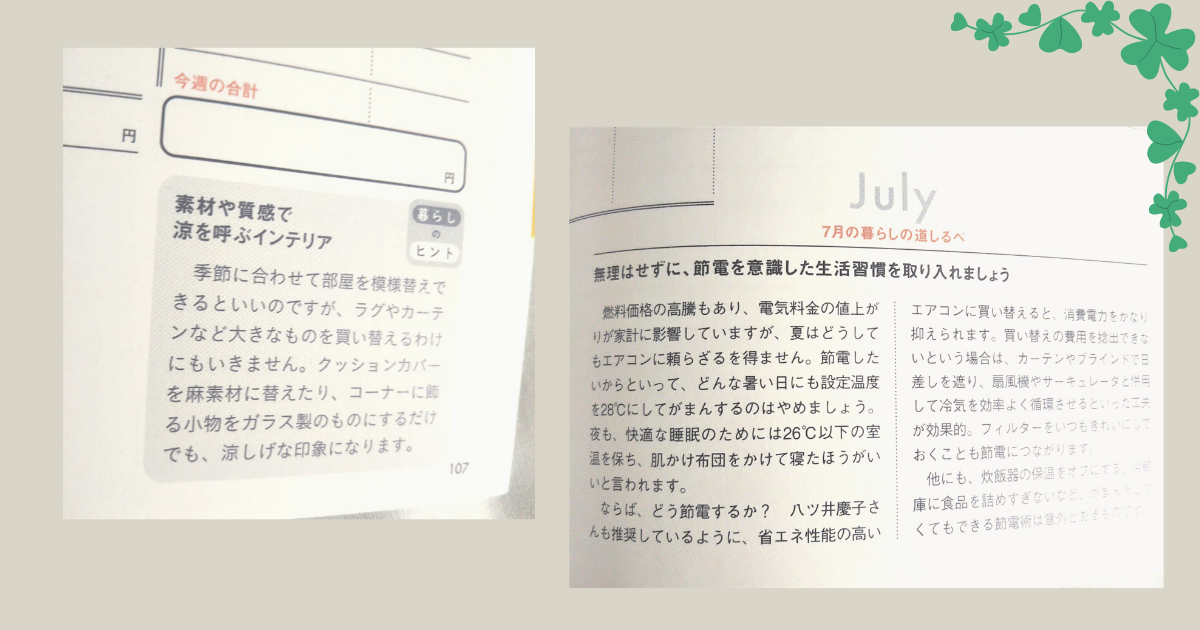 今週の合計
円
円
素材や質感で
涼を呼ぶインテリア
暮らし
の
ヒント
季節に合わせて部屋を模様替えで
きるといいのですが、ラグやカーテ
ンなど大きなものを買い替えるわけ
にもいきません。クッションカバー
を麻素材に替えたり、コーナーに飾
る小物をガラス製のものにするだけ
でも、涼しげな印象になります。
107
July
7月の暮らしの道しるべ
無理はせずに、節電を意識した生活習慣を取り入れましょう
燃料価格の高騰もあり、電気料金の値上が
りが家計に影響していますが、夏はどうして
もエアコンに頼らざるを得ません。節電した
いからといって、どんな暑い日にも設定温度
を28℃にしてがまんするのはやめましょう。
夜も、快適な睡眠のためには26℃以下の室
温を保ち、肌かけ布団をかけて寝たほうがい
いと言われます。
ならば、どう節電するか？　八ツ井慶子さ
んも推奨しているように、省エネ性能の高い
エアコンに買い替えると、消費電力をかなり
抑えられます。買い替えの費用を捻出できな
いという場合は、カーテンやブラインドで日
差しを遮り、扇風機やサーキュレータと併用
して冷気を効率よく循環させるといった工夫
が効果的。フィルターをいつもきれいにして
おくことも節電につながります。
他にも、炊飯器の保温をオフにする、冷蔵
庫に食品を詰めすぎないなど、がまんをしな
くてもできる節電術は意外とあるものです。